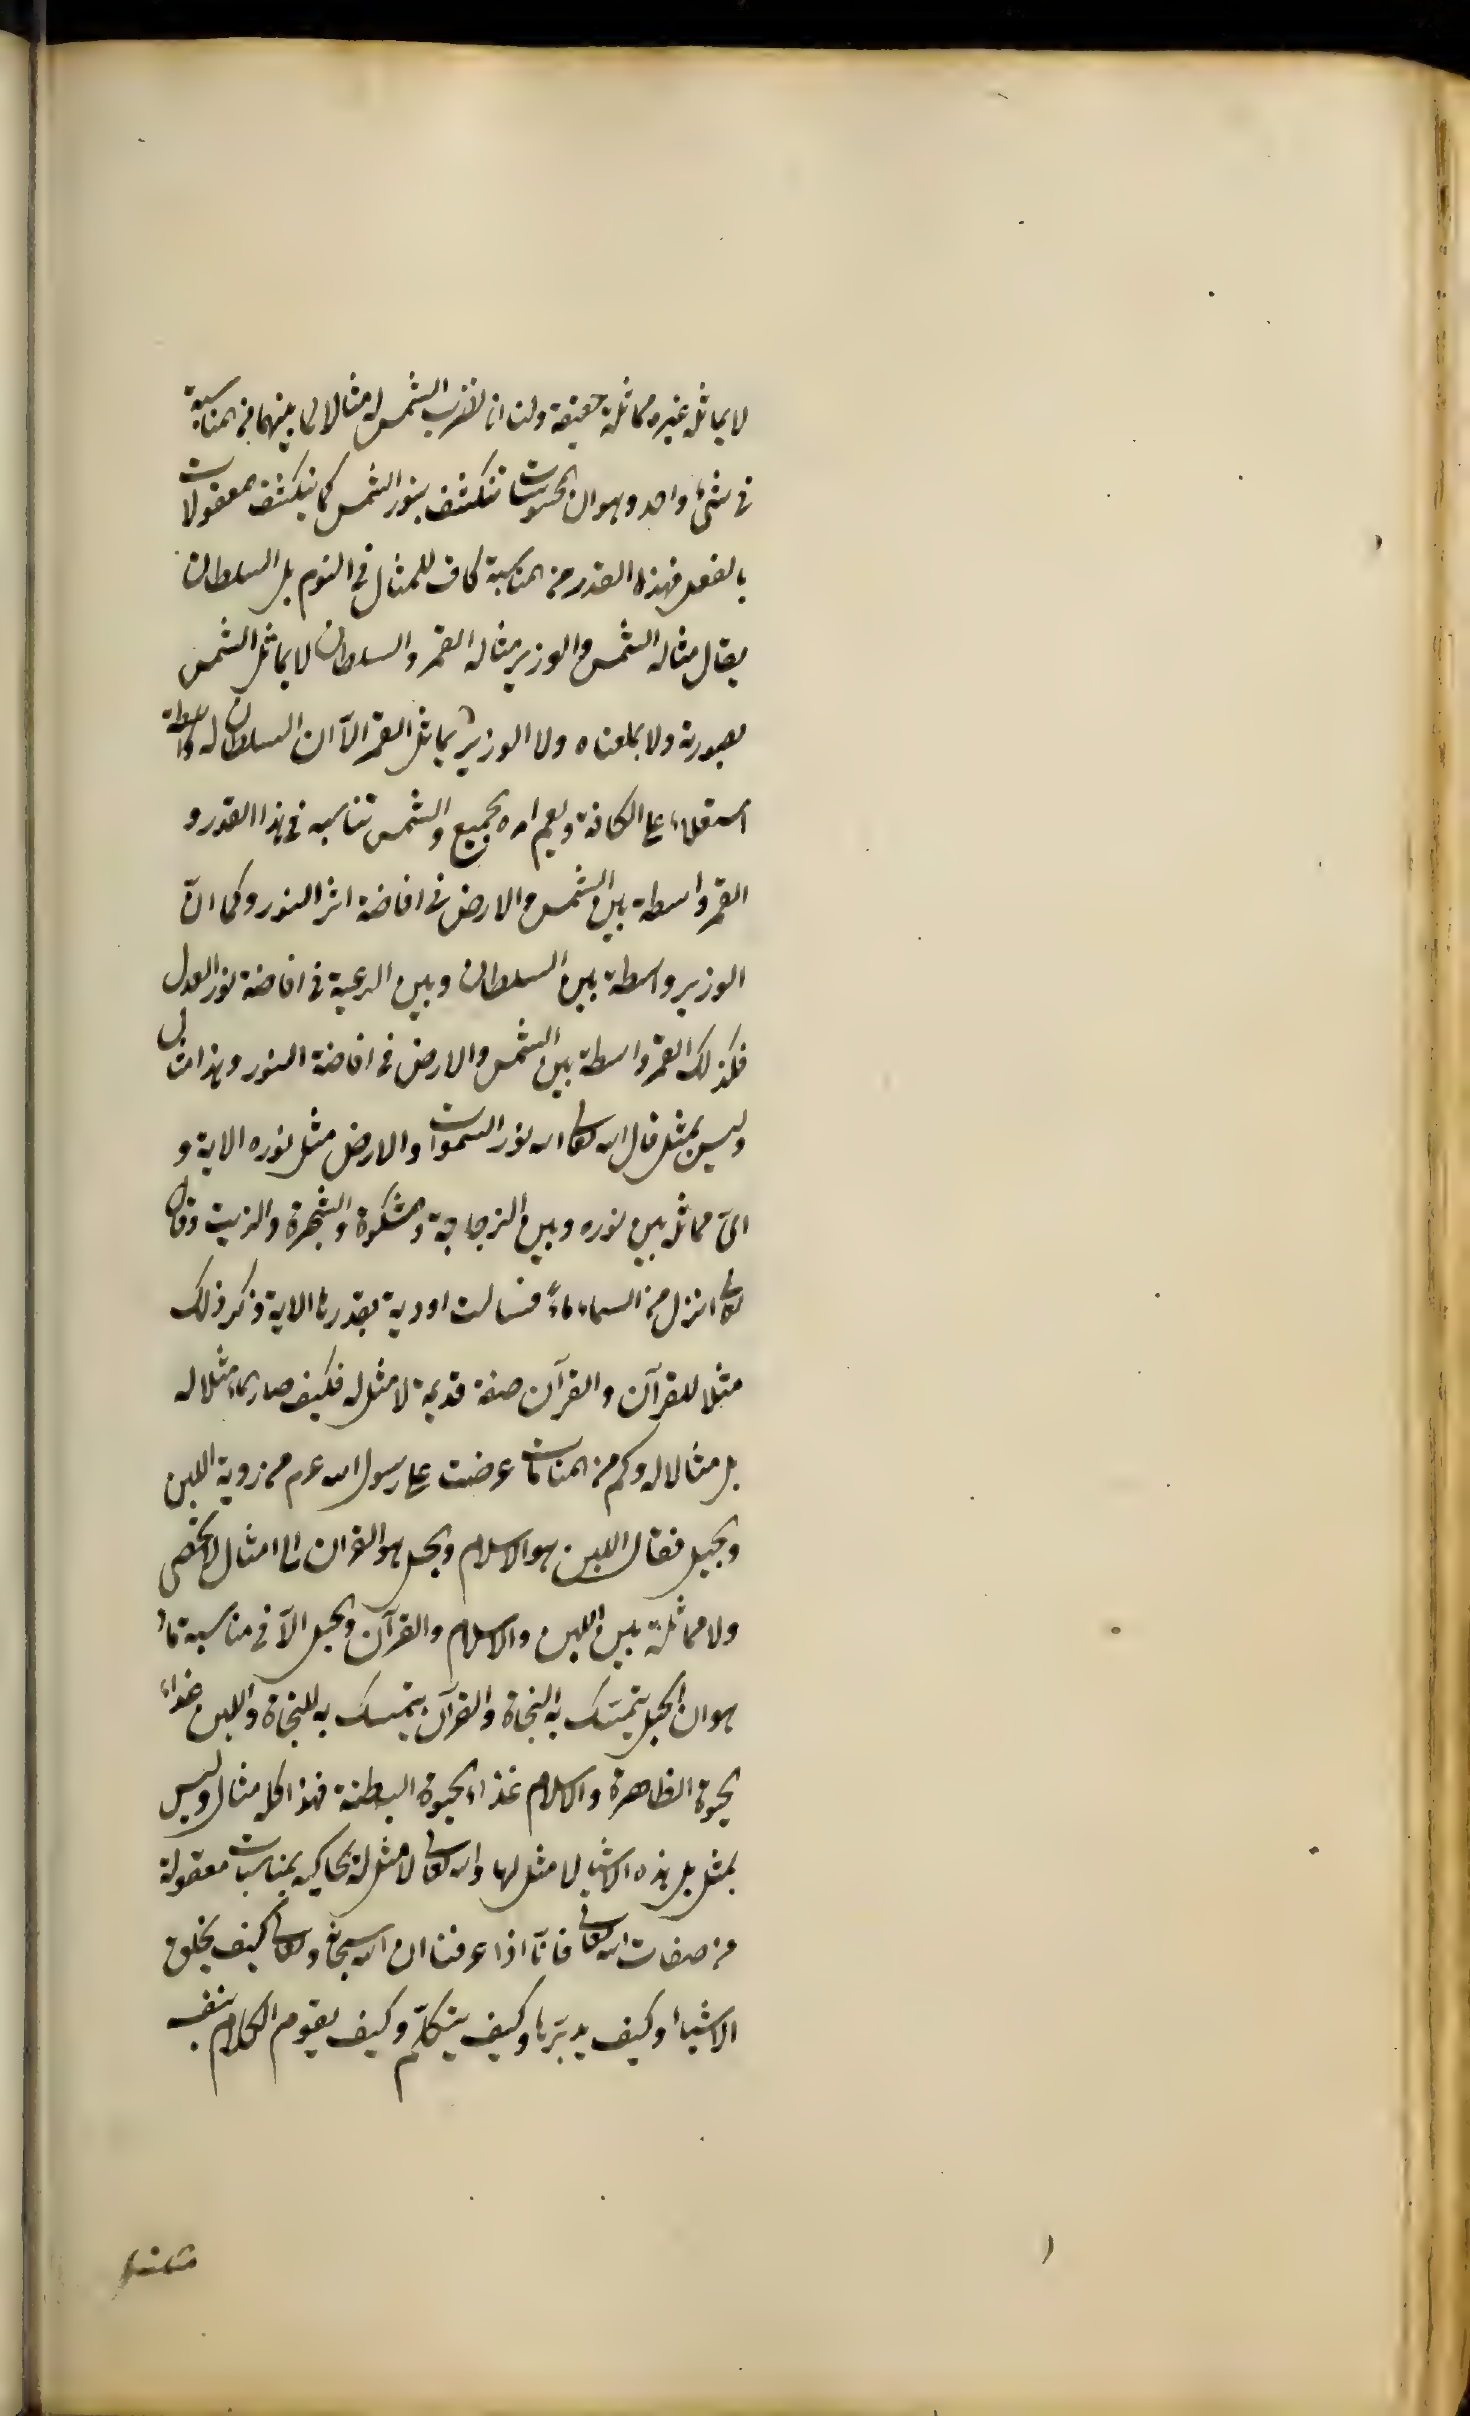 لا يماثله غيره مماثلة حقيقة ولنا ان نضرب الشمس له مثالا لما بينهما من المناسبة
في شئ واحد وهو ان المحسوسات تنكشف بنور الشمس كما ينكشف المعقولات
بالعقل فهذا القدر من المناسبة كاف للمثال في النوم بل السلطان
يقال مثاله الشمس والوزير مثاله القمر والسلطان لا يماثل الشمس
بصورته ولا بمعناه ولا الوزير يماثل القمر الا ان السلطان له واسطة
استعلاء على الكافة ويعم امره الجميع والشمس تناسبه في هذا القدر و
القمر واسطة بين الشمس والارض في افاضة اثر النور وكما انّ
الوزير واسطة بين السلطان وبين الرعية في افاضة نور العدل
فكذلك القمر واسطة بين الشمس والارض في افاضة النور وهذا مثال
وليس بمثل قال الله تعالى الله نور السموات والارض مثل نوره الاية و
اىّ مماثل بين نوره وبين الزجاجة والمشكوة والشجرة والزيت وقال
تعالى انزل من السماء ماءً فسالت اودية بقدرها الاية ذكر ذلك
مثلا للقرآن والقرآن صفة قديمة لا مثل له فكيف صار الماء مثلا له
بل مثالا له وكم من المنامات عرضت على رسول الله عم من روية اللبن
والحبل فقال اللبن هو الاسلام والحبل هو القران الى امثال لا تحصى
ولا مماثلة بين اللبن والاسلام والقرآن والحبل الاّ في مناسبة ما
هو ان الحبل يتمسّك به النجاة والقرآن يتمسك به للنجاة واللبن غذاء
الحيوة الظاهرة والاسلام غذاء الحيوة الباطنة فهذا كله مثال وليس
بمثل بل هذه الاشيا لا مثل لها والله تعالى لا مثل له محاكيه بمناسبات معقولة
من صفات الله تعالى فانّا اذا عرفنا ان الله سبحانه وتعالى كيف يخلق
الاشياء وكيف يدبّرها وكيف يتكلّم وكيف يقوم الكلام بنفسه